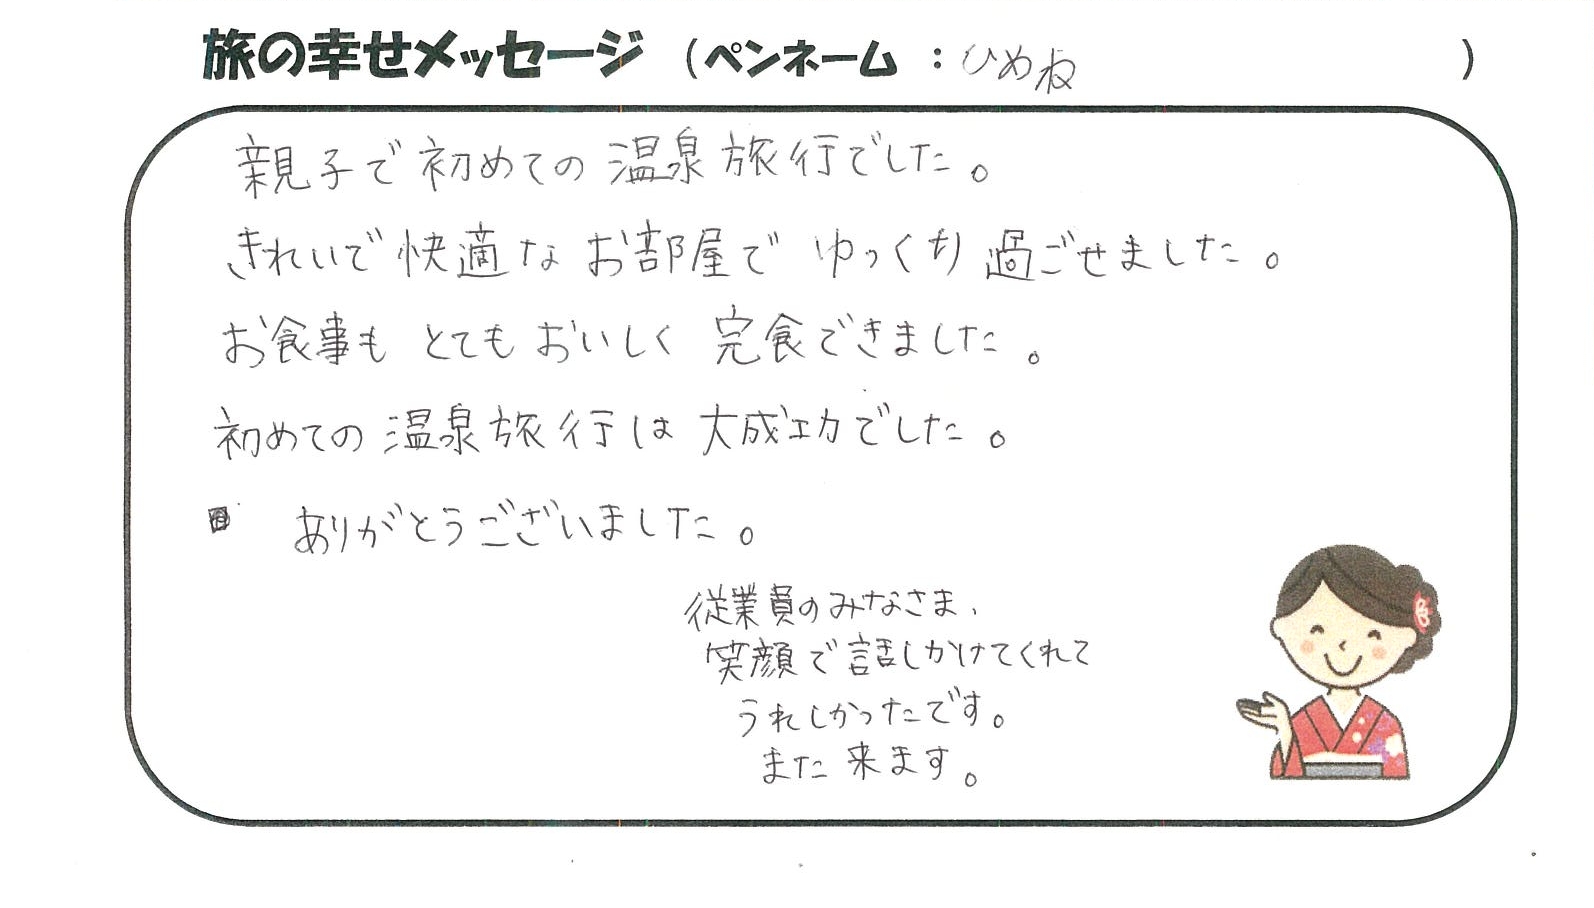 旅の幸せメッセージ (ペンネーム : ひめね )
親子で初めての温泉旅行でした。
きれいで快適なお部屋でゆっくり過ごせました。
お食事もとてもおいしく完食できました。
初めての温泉旅行は大成功でした。
ありがとうございました。
従業員のみなさま、
笑顔で話しかけてくれて
うれしかったです。
また来ます。